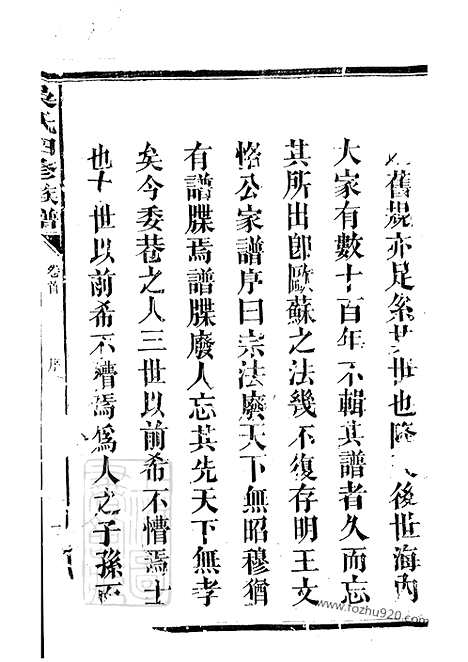 舊規亦足系其世也隆後世海內
大家有數十百年不輯其譜者久而忘
其所出卽歐蘇之法幾不復存明王文
恪公家譜序曰宗法廢天下無昭穆猶
有譜牒焉譜牒廢人忘其先天下無孝
矣今委巷之人三世以前希不懵焉士
也十世以前希不懵焉爲人之子孫而
吳氏四修族譜
卷首
序
www.fozhu920.com